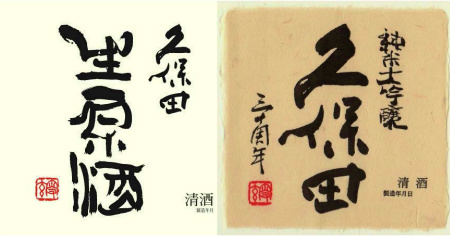 久保田
生原酒
清酒
製造年月
純米大吟醸
久保田
三十周年
清酒
製造年月日